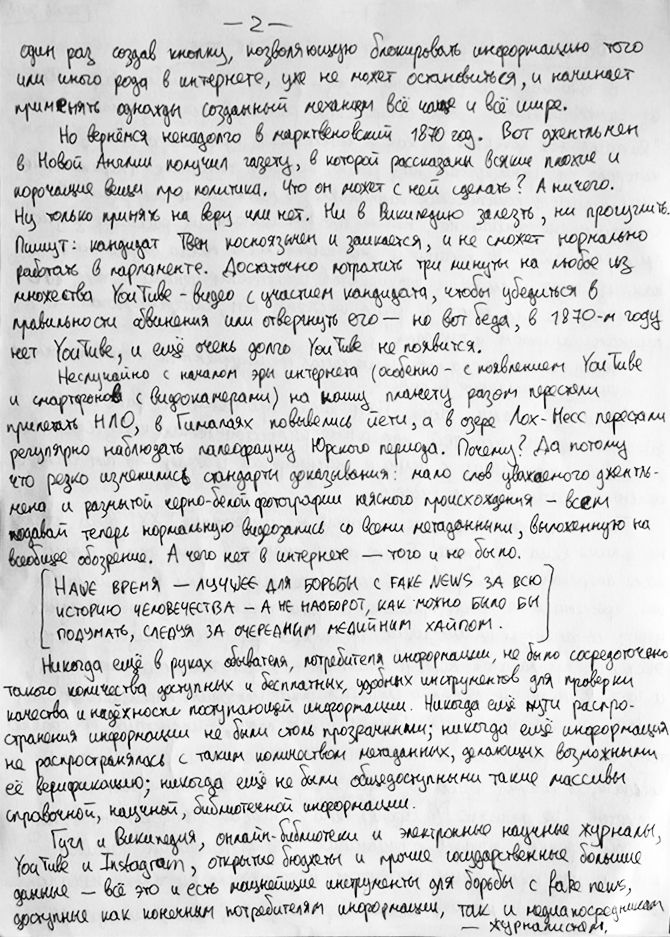 — 2 —
один раз создав кнопку, позволяющую блокировать информацию того
или иного рода в интернете, уже не может остановиться, и начинает
применять однажды созданный механизм всё чаще и всё шире.
Но вернёмся ненадолго в марктвеновский 1870 год. Вот джентльмен
в Новой Англии получил газету, в которой рассказаны всякие плохие и
порочащие вещи про политика. Что он может с ней сделать? А ничего.
Ну только принять на веру или нет. Ни в Википедию залезть, ни прогуглить.
Пишут: кандидат Твен косноязычен и заикается, и не сможет нормально
работать в парламенте. Достаточно потратить три минуты на любое из
множества YouTube-видео с участием кандидата, чтобы убедиться в
правильности обвинения или отвергнуть его — но вот беда, в 1870-м году
нет YouTube, и ещё очень долго YouTube не появится.
Неслучайно с началом эры интернета (особенно - с появлением YouTube
и смартфонов с видеокамерами) на нашу планету разом перестали
прилетать НЛО, в Гималаях повывелись йети, а в озере Лох-Несс перестали
регулярно наблюдать палеофауну Юрского периода. Почему? Да потому
что резко изменились стандарты доказывания: мало слов уважаемого джентль-
мена и размытой черно-белой фотографии неясного происхождения – всем
подавай теперь нормальную видеозапись со всеми метаданными, выложенную на
всеобщее обозрение. А чего нет в интернете — того и не было.
[НАШЕ ВРЕМЯ — ЛУЧШЕЕ ДЛЯ БОРЬБЫ С FAKE NEWS ЗА ВСЮ
ИСТОРИЮ ЧЕЛОВЕЧЕСТВА – А НЕ НАОБОРОТ, КАК МОЖНО БЫЛО БЫ
ПОДУМАТЬ, СЛЕДУЯ ЗА ОЧЕРЕДНЫМ МЕДИЙНЫМ ХАЙПОМ.]
Никогда ещё в руках обывателя, потребителя информации, не было сосредоточено
такого количества доступных и бесплатных, удобных инструментов для проверки
качества и надёжности поступающей информации. Никогда ещё пути распро-
странения информации не были столь прозрачными; никогда ещё информация
не распространялась с таким количеством метаданных, делающих возможными
её верификацию; никогда ещё не были общедоступными такие массивы
справочной, научной, библиотечной информации.
Гугл и Википедия, онлайн-библиотеки и электронные научные журналы,
YouTube и Instagram, открытые бюджеты и прочие государственные большие
данные — всё это и есть мощнейшие инструменты для борьбы с fake news,
доступные как конечным потребителям информации, так и медиапосредникам
— журналистам.